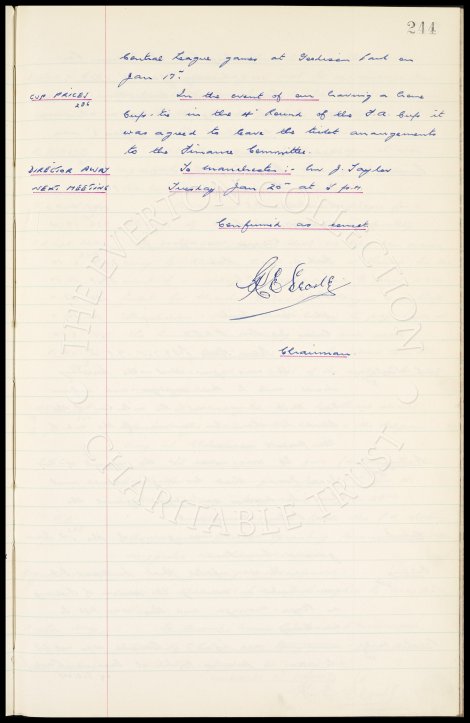 244
Central League games at Goodison Park on
Jan 17th.
CUP PRICES
206
In the event of our having a home
Cup-tie in the 4th Round of the F.A. Cup it
was agreed to leave the ticket arrangements
to the Finance Committee.
DIRECTOR AWAY
To Manchester:- Mr J. Taylor
NEXT MEETING
Tuesday Jan 20th at 5 p.m.
Confirmed as correct
Chairman
THE EVERTON COLLECTION
CHARITABLE TRUST